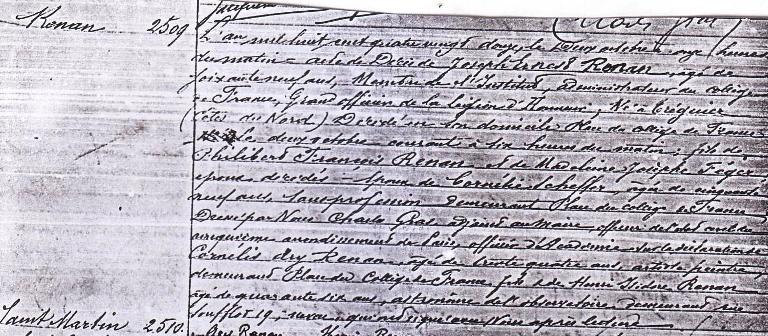 Renan 2509
L'an mil huit cent quatre vingt douze, le Deux octobre à onze heures
du matin = acte de Décès de Joseph Ernest Renan, âgé de
soixante neuf ans, Membre de l'Institut, Administrateur du collège
de France, Grand officier de la Légion d'Honneur, Né à Tréguier
(Côtes du Nord) Décédé en son domicile, Place du collège de France
le deux octobre courant à six heures du matin; fils de
Philibert François Renan et de Madeleine Josèphe Feger
époux décédés = époux de Cornélie Scheffer, âgée de cinquante
neuf ans, sans profession demeurant Place du collège de France,
Dressé par Nous Charles Gras adjoint au Maire, officier de l'état civil du
cinquième arrondissement de Paris, officier d'Académie sur la déclaration de
Cornelis Ary Renan âgé de trente quatre ans, artiste peintre,
demeurant Place du Collège de France fils et de Henri Isidore Renan
âgé de quarante six ans, astronome de l'observatoire demeurant rue
Soufflot 19, neveu, qui ont signé avec Nous après lecture
Saint Martin 2510
Ary Renan